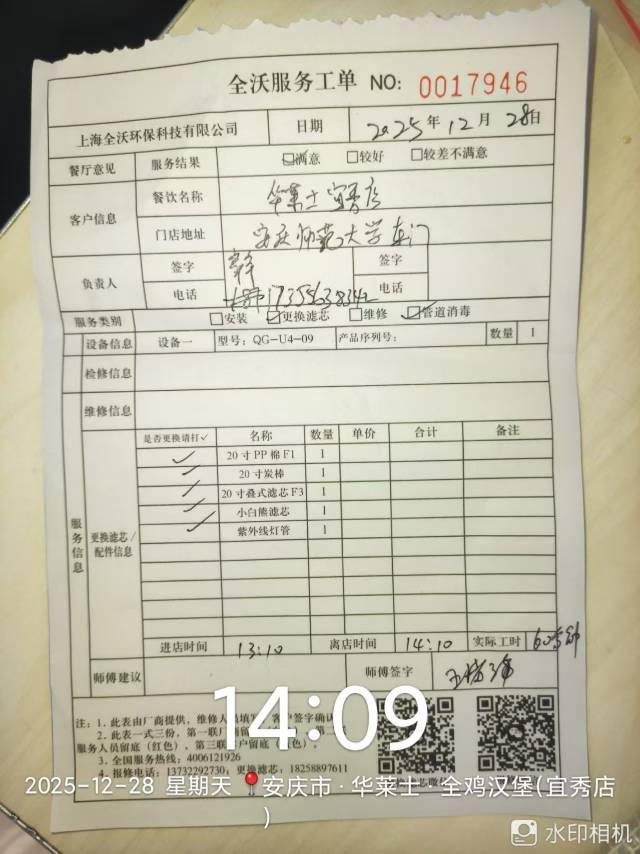 全沃服务工单 NO: 0017946
上海全沃环保科技有限公司 日期 2025年12月28日
餐厅意见 服务结果 ☑满意 □较好 □较差不满意
客户信息 餐饮名称 华莱士宜秀店
门店地址 安庆师范大学东门
负责人 签字 签字
电话 17355638342 电话
服务类别 □安装 ☑更换滤芯 □维修 ☑管道消毒
设备信息 设备一 型号: QG-U4-09 产品序列号: 数量 1
检修信息
维修信息
服务信息 更换滤芯/配件信息
是否更换请打✓ 名称 数量 单价 合计 备注
✓ 20寸PP棉F1 1
✓ 20寸炭棒 1
✓ 20寸叠式滤芯F3 1
✓ 小白熊滤芯 1
✓ 紫外线灯管 1
进店时间 13:10 离店时间 14:10 实际工时 60分钟
师傅建议 师傅签字
14:09
注: 1. 此表由厂商提供, 维修人员填 客户签字确认
2. 此表一式三份, 第一联厂 留
服务人员留底(红色), 第三联 户留底
3. 全国服务热线: 4006121926
4. 报修电话: 13732292730; 更换滤芯: 18258897611
2025-12-28 星期天 安庆市·华莱士·全鸡汉堡(宜秀店
)
水印相机